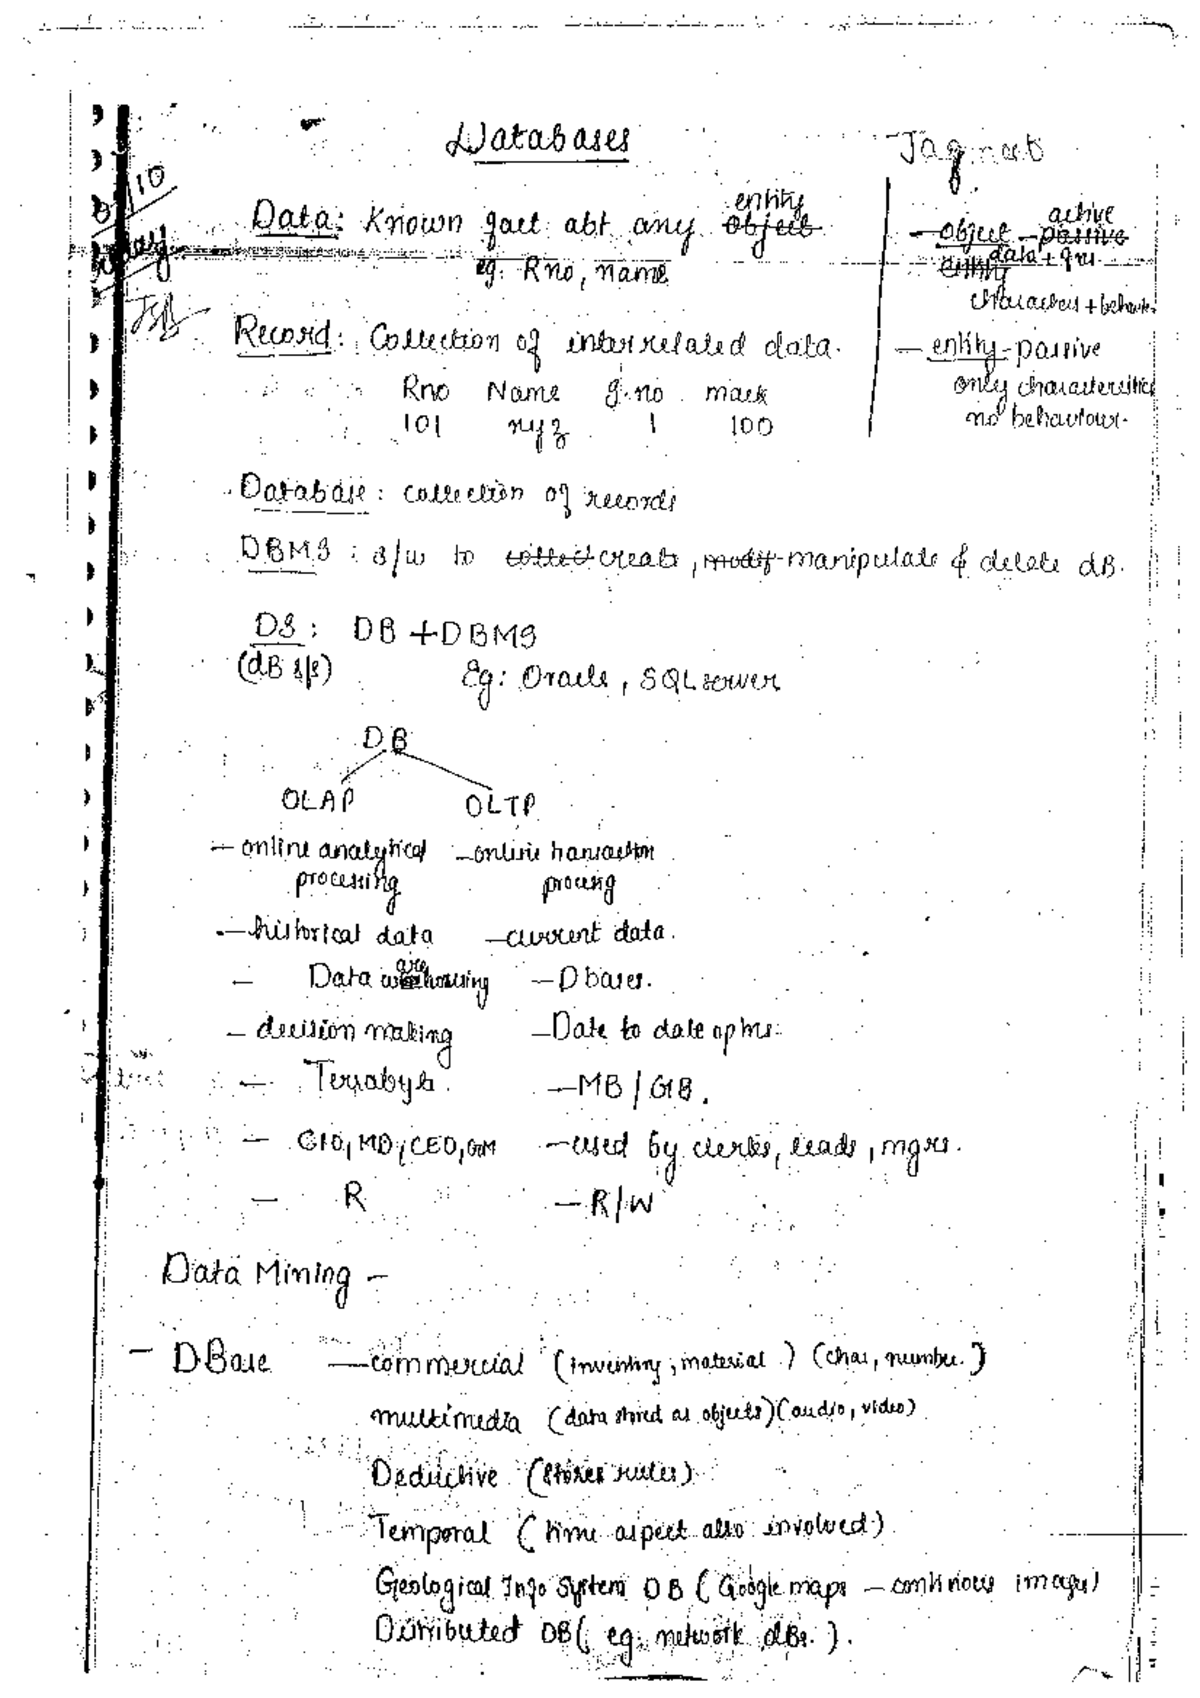 Databases
Jagneet
Data: Known fact abt any object entity
eg: Rno, name
— object - passive active
entity data + fn.
characters + behavi.
Record: Collection of interrelated data.
Rno Name f.no mark
101 xyz 1 100
— entity - passive
only characteristics
no behaviour.
Database: collection of records
DBMS: s/w to collect create, modif manipulate & delete dB.
DS: DB + DBMS
(dB s/s)
Eg: Oracle, SQL server
DB
OLAP OLTP
— online analytical processing — online transaction procesig
— historical data — current data.
— Data warehousing — Dbases.
— decision making — Date to date optns.
— Terrabyte. — MB / GB.
— CIO, MD, CEO, GM — used by clerks, leads, mgrs.
— R — R/W
Data Mining —
— DBase — commercial (inventory, material) (char, number.)
multimedia (data stored as objects) (audio, video)
Deductive (stores rules)
Temporal (time aspect also involved)
Geological Info System DB (Google maps — continous images)
Distributed DB (eg: network dBs.).